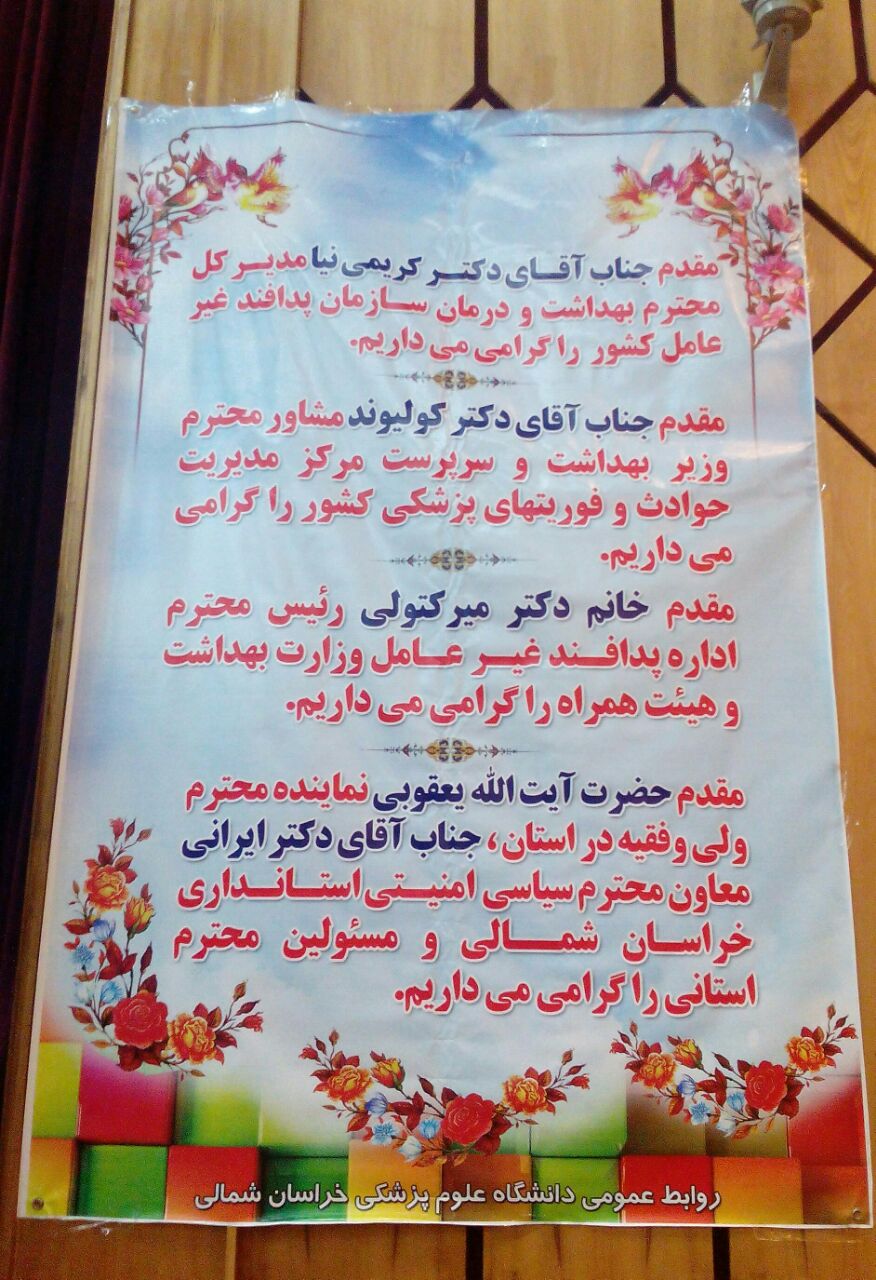 مقدم جناب آقای دکتر کریمی نیا مدیر کل
محترم بهداشت و درمان سازمان پدافند غیر
عامل کشور را گرامی می داریم.
مقدم جناب آقای دکتر کولیوند مشاور محترم
وزیر بهداشت و سرپرست مرکز مدیریت
حوادث و فوریتهای پزشکی کشور را گرامی
می داریم.
مقدم خانم دکتر میرکتولی رئیس محترم
اداره پدافند غیر عامل وزارت بهداشت
و هیئت همراه را گرامی می داریم.
مقدم حضرت آیت الله یعقوبی نماینده محترم
ولی وفقیه در استان، جناب آقای دکتر ایرانی
معاون محترم سیاسی امنیتی استانداری
خراسان شمالی و مسئولین محترم
استانی را گرامی می داریم.
روابط عمومی دانشگاه علوم پزشکی خراسان شمالی